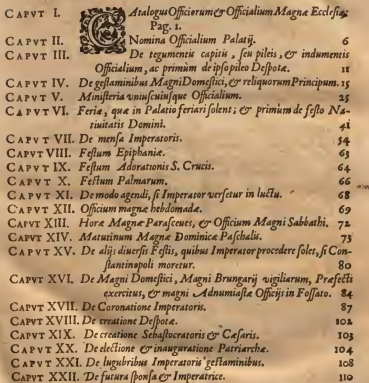 CAPVT I. CAtalogus Officiorum & Officialium Magnæ Ecclesiæ
Pag. 1.
CAPVT II. Nomina Officialium Palatij. 6
CAPVT III. De tegumentis capitis, seu pileis, & indumentis
Officialium, ac primùm de ipso pileo Despotæ. 11
CAPVT IV. De gestaminibus Magni Domestici, & reliquorum Principum. 15
CAPVT V. Ministeria vniuscuiusque Officialium. 25
CAPVT VI. Feriæ, quæ in Palatio feriari solent; & primùm de festo Na-
tiuitatis Domini. 41
CAPVT VII. De mensa Imperatoris. 54
CAPVT VIII. Festum Epiphaniæ. 63
CAPVT IX. Festum Adorationis S. Crucis. 64
CAPVT X. Festum Palmarum. 66
CAPVT XI. De modo agendi, si Imperator versetur in luctu. 68
CAPVT XII. Officium magnæ hebdomadæ. 69
CAPVT XIII. Horæ Magnæ Parasceues, & Officium Magni Sabbathi. 72
CAPVT XIV. Matutinum Magnæ Dominicæ Paschalis. 73
CAPVT XV. De alijs diuersis Festis, quibus Imperator procedere solet, si Con-
stantinopoli moretur. 80
CAPVT XVI. De Magni Domestici, Magni Drungarij vigiliarum, Præfecti
exercitus, & magni Adnumiastæ Officijs in Fossato. 84
CAPVT XVII. De Coronatione Imperatoris. 87
CAPVT XVIII. De creatione Despotæ. 102
CAPVT XIX. De creatione Sebastocratoris & Cæsaris. 103
CAPVT XX. De electione & inauguratione Patriarchæ. 104
CAPVT XXI. De lugubribus Imperatoris gestaminibus. 108
CAPVT XXII. De futura sponsa & Imperatrice. 110